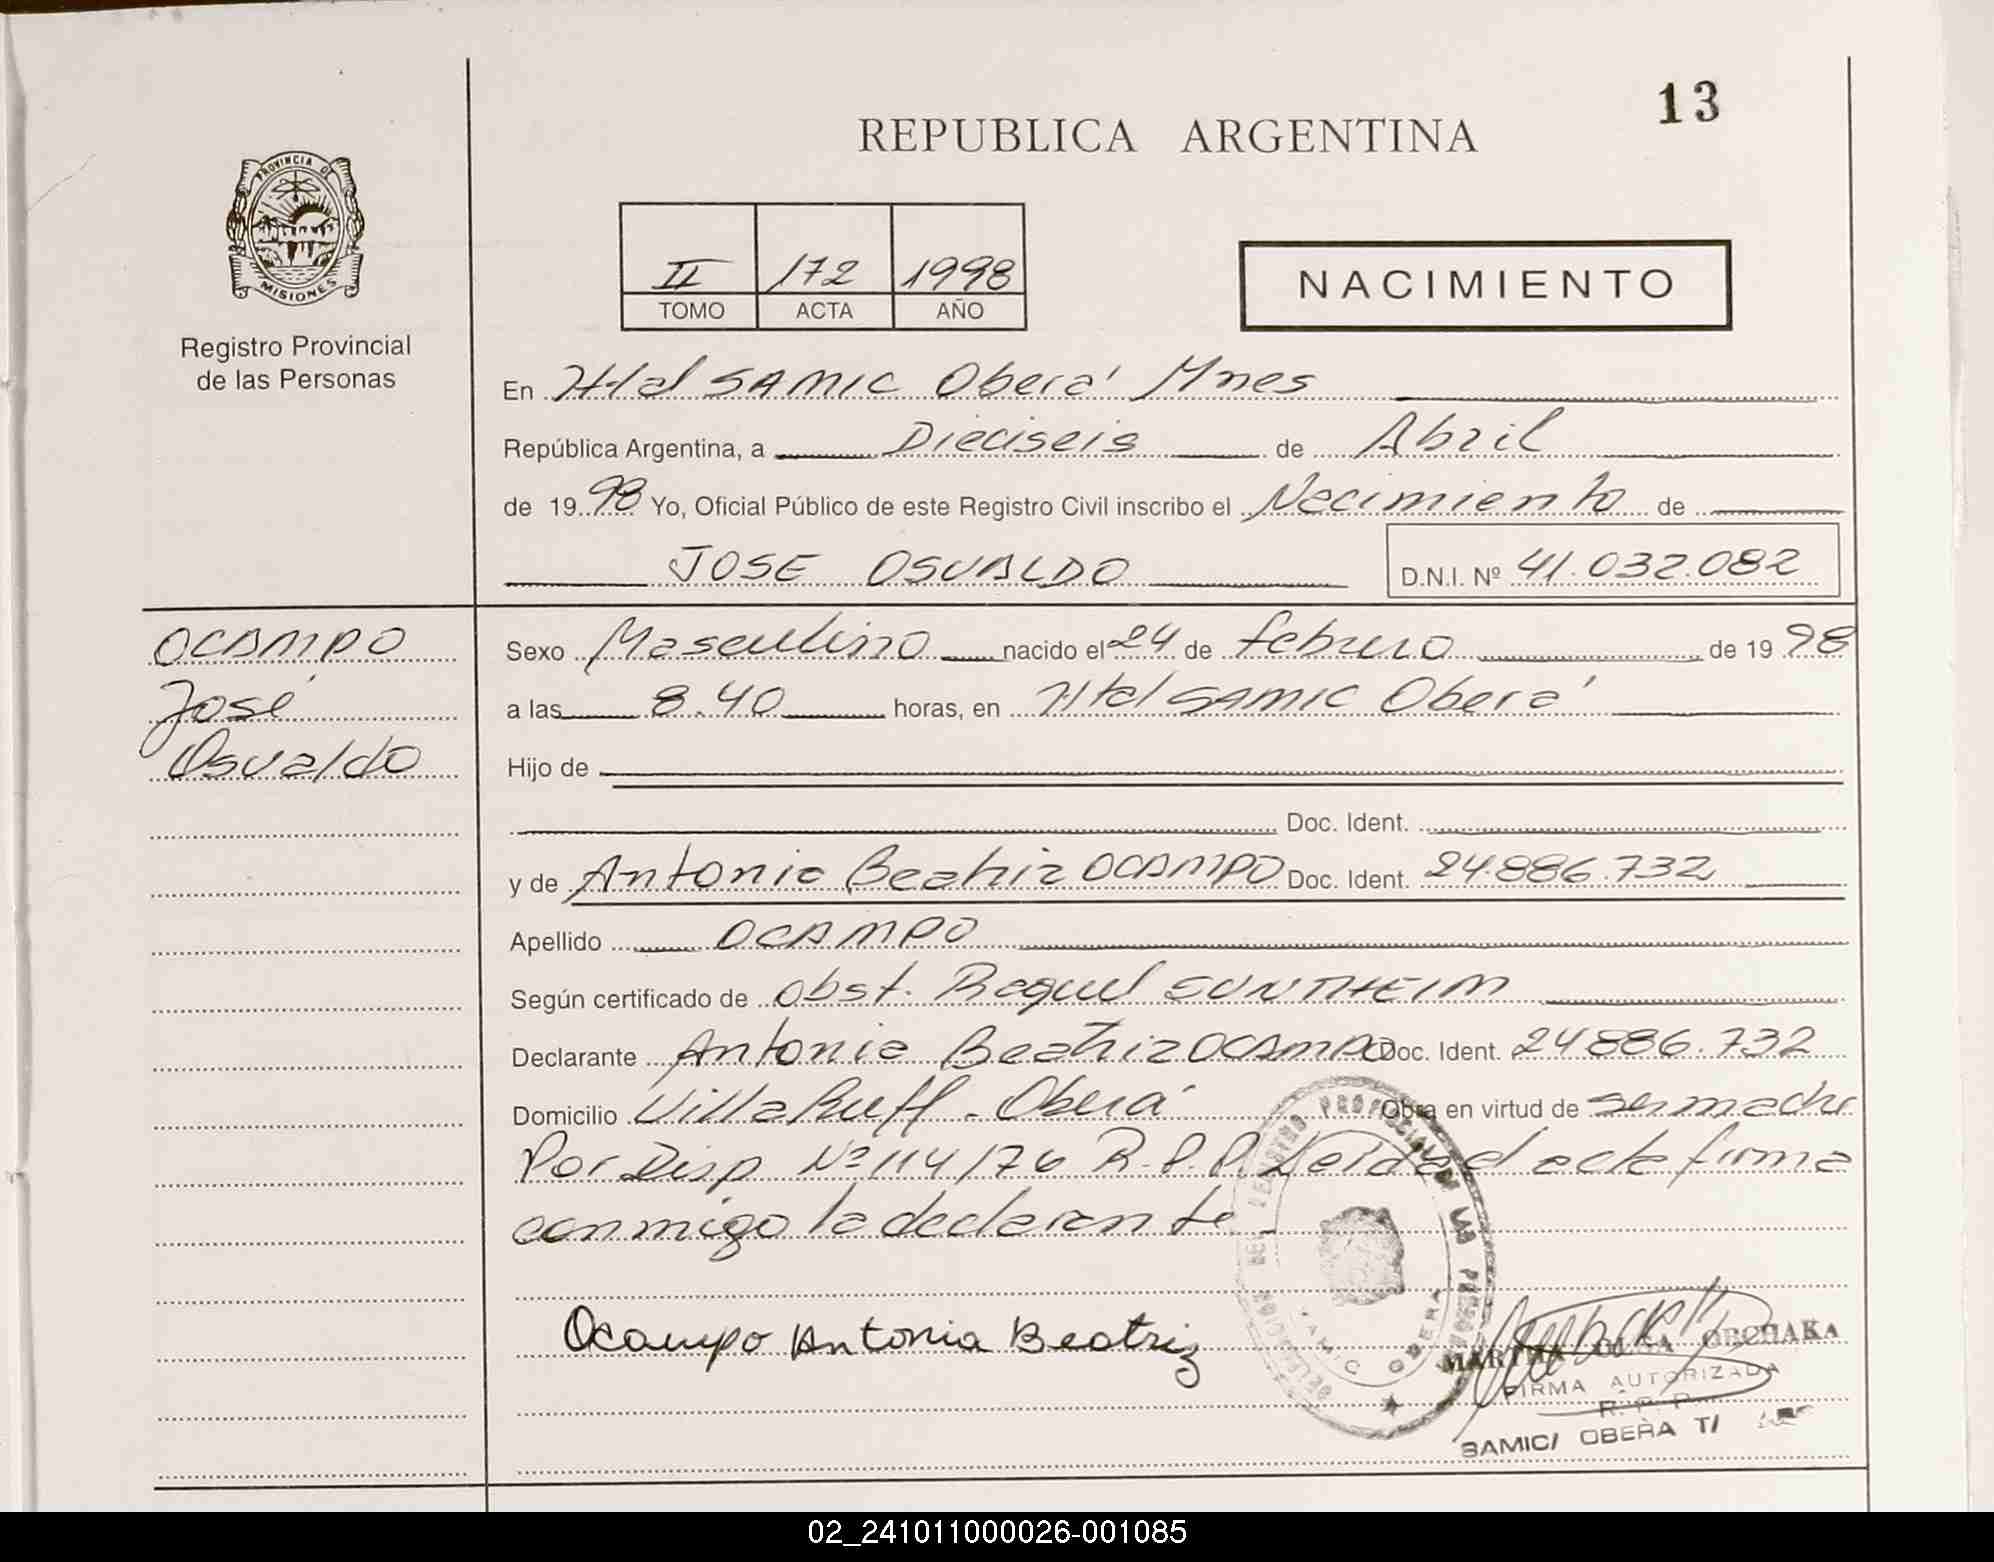 13
REPUBLICA ARGENTINA
PROVINCIA DE
MISIONES
Registro Provincial
de las Personas
II 172 1998
TOMO ACTA AÑO
NACIMIENTO
En Htal SAMIC Oberá Mnes
República Argentina, a Dieciseis de Abril
de 1998 Yo, Oficial Público de este Registro Civil inscribo el Nacimiento de
JOSE OSVALDO D.N.I. Nº 41.032.082
OCAMPO
José
Osvaldo
Sexo Masculino nacido el 24 de febrero de 1998
a las 8.40 horas, en Htal SAMIC Oberá
Hijo de
Doc. Ident.
y de Antonia Beatriz OCAMPO Doc. Ident. 24.886.732
Apellido OCAMPO
Según certificado de Obst. Raquel SUNTHEIM
Declarante Antonia Beatriz OCAMPO Doc. Ident. 24886.732
Domicilio Villa Ruff - Oberá Obra en virtud de ser madre
Por Disp Nº 114/76 R.P.P. Leída el acta firma
conmigo la declarante
Ocampo Antonia Beatriz
DELEGACION DEL REGISTRO PROVINCIAL DE LAS PERSONAS
SAMIC OBERA
MARTHA OLGA ORCHAKA
FIRMA AUTORIZADA
R. P. P.
SAMIC/ OBERA T/
02_241011000026-001085